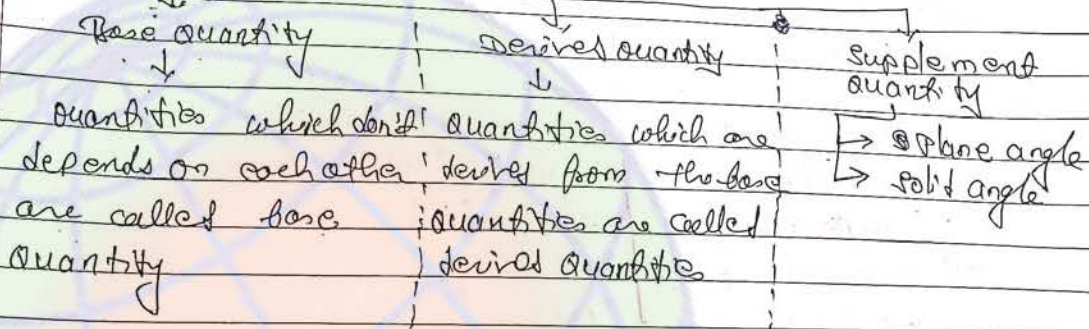 Base Quantity
↓
Quantities which don't
depends on each other
are called base
Quantity
Derived Quantity
↓
Quantities which are
derives from the base
quantities are called
derived Quantities
Supplement
quantity
→ plane angle
→ solid angle